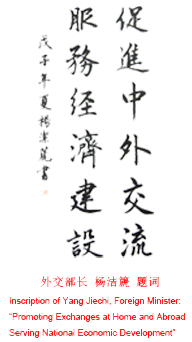 促進中外交流
服務经濟建設
戊子年夏楊潔篪書
外交部长 杨洁篪 题词
Inscription of Yang Jiechi, Foreign Minister:
"Promoting Exchanges at Home and Abroad
Serving National Economic Development"